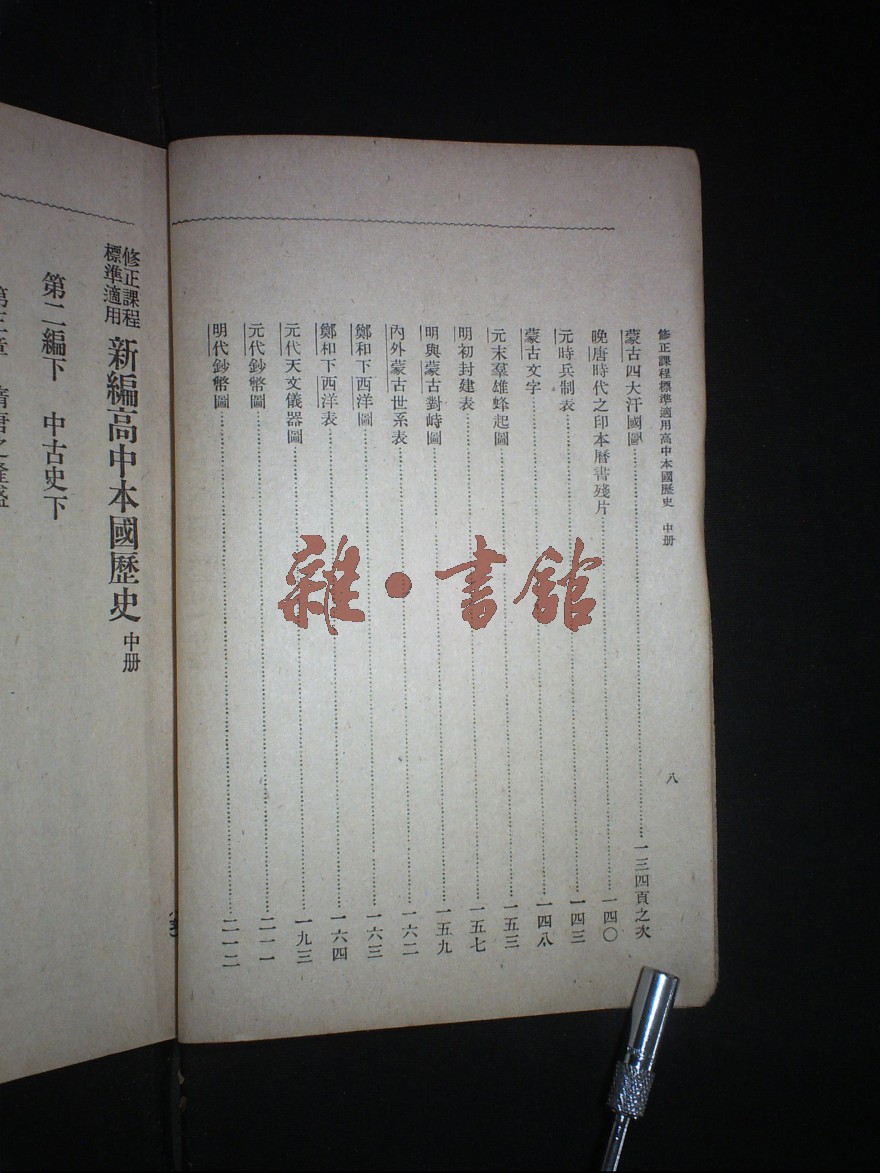 修正課程標準適用高中本國歷史 中册
八
蒙古四大汗國圖……一三四頁之次
晚唐時代之印本曆書殘片……一四〇
元時兵制表……一四三
蒙古文字……一四八
元末羣雄蜂起圖……一五三
明初封建表……一五七
明與蒙古對峙圖……一五九
內外蒙古世系表……一六二
鄭和下西洋圖……一六三
鄭和下西洋表……一六四
元代天文儀器圖……一九三
元代鈔幣圖……二一一
明代鈔幣圖……二一二
修正課程
標準適用
新編高中本國歷史 中册
第二編下 中古史下
第三章 隋唐之隆盛
雜·書館